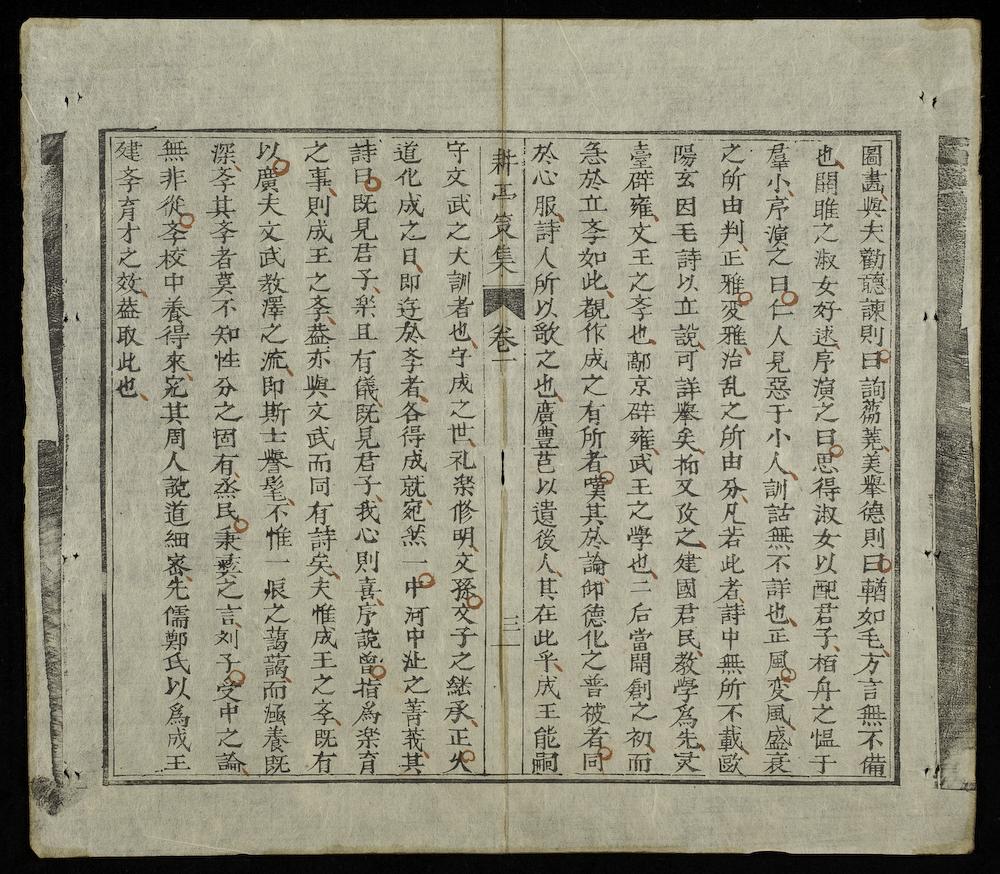 圖畵與夫勸聽諫則曰詢蒭蕘羙擧德則曰輶如毛方言無不備
也關雎之淑女好逑序演之曰思得淑女以配君子栢舟之愠于
羣小序演之曰仁人見惡于小人訓詁無不詳也正風変風盛衰
之所由判正雅変雅治乱之所由分凡若此者詩中無所不載歐
陽玄因毛詩以立說可詳擧矣抑又攷之建國君民教學爲先灵
臺辟雍文王之斈也鄗京辟雍武王之學也二后當開創之初而
急於立斈如此觀作成之有所者嘆其於論仰德化之普被者同
於心服詩人所以歌之也廣豊芑以遺後人其在此乎成王能嗣
耕亭策集 卷一 三
守文武之大訓者也守成之世礼楽修明文孫文子之継承正火
道化成之日即造於斈者各得成就宛然一中河中沚之菁莪其
詩曰既見君子楽且有儀既見君子我心則喜序說曾指爲楽育
之事則成王之斈葢亦與文武而同有詩矣夫惟成王之斈既有
以廣夫文武教澤之流即斯士譽髦不惟一辰之藹藹而涵養既
深斈其斈者莫不知性分之固有烝民秉彛之言刘子受中之論
無非從斈校中養得來宛其周人說道細密先儒鄭氏以爲成王
建斈育才之效葢取此也